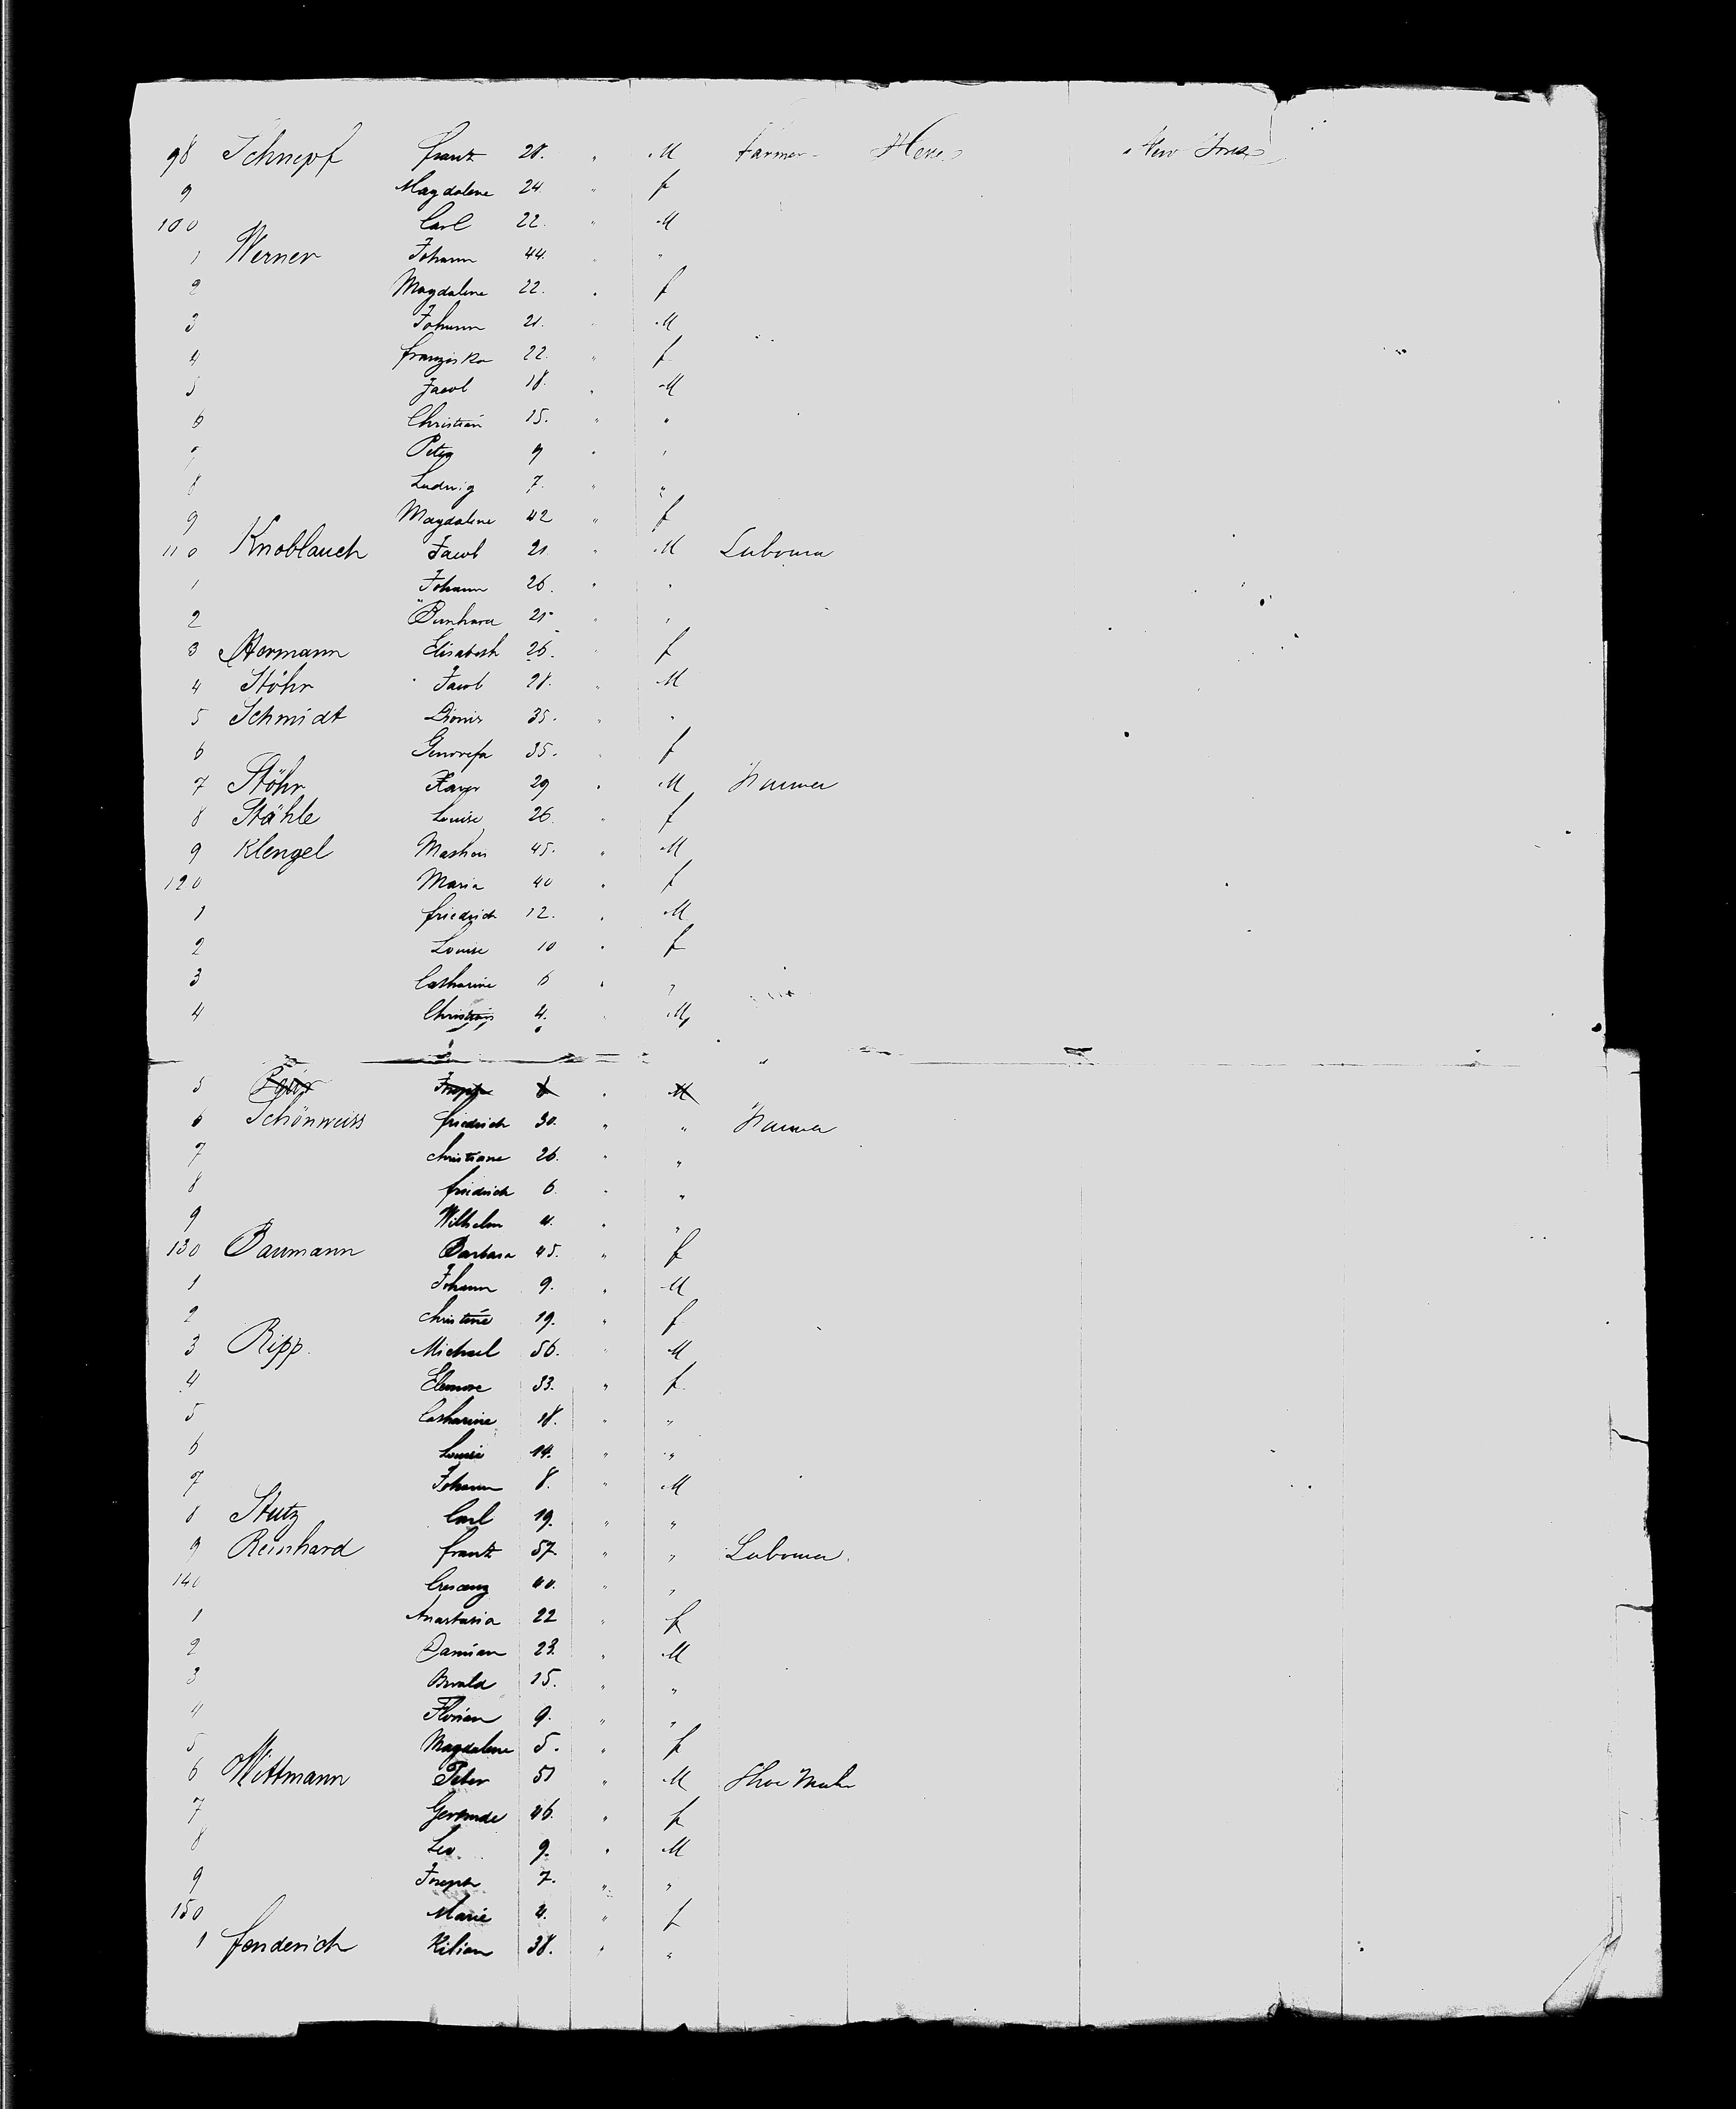 98 Schnepf Frantz 28. " M Farmer Hesse New York
9 Magdalene 24. " f
100 Carl 22. " M
1 Werner Johann 44. " "
2 Magdalene 22. " f
3 Johann 21. " M
4 Franziska 22. " f
5 Jacob 18. " M
6 Christian 15. " "
7 Peter 9 " "
8 Ludwig 7. " "
9 Magdalene 42 " f
110 Knoblauch Jacob 21 " M Labourer
1 Johann 26. " "
2 Burkhard 25 " "
3 Hermann Elisabeth 26. " f
4 Stöhr Jacob 28. " M
5 Schmidt Dionis 35. " "
6 Genovefa 35. " f
7 Stöhr Xaver 29 " M Farmer
8 Stähle Louise 26. " f
9 Klengel Mathias 45. " M
120 Maria 40 " f
1 Friedrich 12. " M
2 Louise 10 " f
3 Catharine 6 " "
4 Christian 4. " M
5 Joseph " M
6 Schönweiss Friedrich 30. " " Farmer
7 Christiane 26. " "
8 Friedrich 6. " "
9 Wilhelm 4. " "
130 Baumann Barbara 45. " f
1 Johann 9. " M
2 Christine 19. " f
3 Ripp. Michael 56. " M
4 Eleonore 33. " f
5 Catharine 18. " "
6 Louise 14. " "
7 Johann 8. " M
8 Stutz Carl 19. " "
9 Reinhard Frantz 57 " " Labourer
140 Crescenz 40. " "
1 Anastasia 22 " f
2 Damian 23. " M
3 15. " "
4 Florian 9. " "
5 Magdalene 5. " f
6 Wittmann Peter 51 " M Shoe Maker
7 46. " f
8 Leo 9. " M
9 Joseph 7. " "
150 Marie 4. " f
1 Fenderich Kilian 38. " "